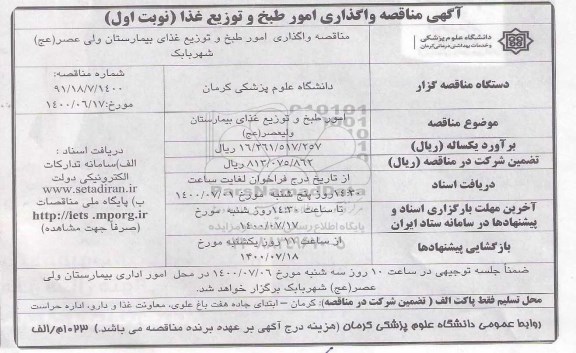 آگهی مناقصه واگذاری امور طبخ و توزیع غذا (نوبت اول)
دانشگاه علوم پزشکی
و خدمات بهداشتی درمانی کرمان
مناقصه واگذاری امور طبخ و توزیع غذای بیمارستان ولی عصر(عج)
شهربابک
دستگاه مناقصه گزار
دانشگاه علوم پزشکی کرمان
شماره مناقصه:
۹۱/۱۸/۷/۱۴۰۰
مورخ:۱۴۰۰/۰۶/۱۷
موضوع مناقصه
امور طبخ و توزیع غذای بیمارستان
ولیعصر(عج)
برآورد یکساله (ریال)
۱۶/۲۶۱/۵۱۷/۲۵۷ ریال
تضمین شرکت در مناقصه (ریال)
۸۱۳/۰۷۵/۸۶۲ ریال
دریافت اسناد :
الف)سامانه تدارکات
الکترونیکی دولت
www.setadiran.ir
ب) پایگاه ملی مناقصات
http://iets .mporg.ir
(صرفاً جهت مشاهده)
دریافت اسناد
از تاریخ درج فراخوان لغایت ساعت
۱۴:۳۰روز پنج شنبه مورخ ۱۴۰۰/۰۷/۰۱
آخرین مهلت بارگزاری اسناد و
پیشنهادها در سامانه ستاد ایران
تا ساعت ۱۴:۳۰روز شنبه مورخ
۱۴۰۰/۰۷/۱۷
بازگشایی پیشنهادها
از ساعت ۱۰ روز یکشنبه مورخ
۱۴۰۰/۰۷/۱۸
ضمناً جلسه توجیهی در ساعت ۱۰ روز سه شنبه مورخ ۱۴۰۰/۰۷/۰۶ در محل امور اداری بیمارستان ولی
عصر(عج) شهربابک برگزار خواهد شد.
محل تسلیم فقط پاکت الف ( تضمین شرکت در مناقصه): کرمان – ابتدای جاده هفت باغ علوی، معاونت غذا و دارو، اداره حراست
روابط عمومی دانشگاه علوم پزشکی کرمان (هزینه درج آگهی بر عهده برنده مناقصه می باشد.) ۱۰۲۳م/الف